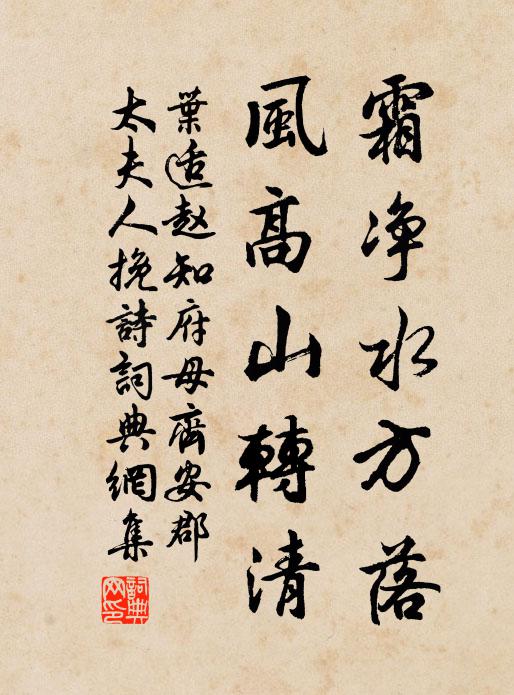 霜净水方落
風高山轉清
葉适赵知府母齊安郡
太夫人挽詩詞典網集
詞典網印